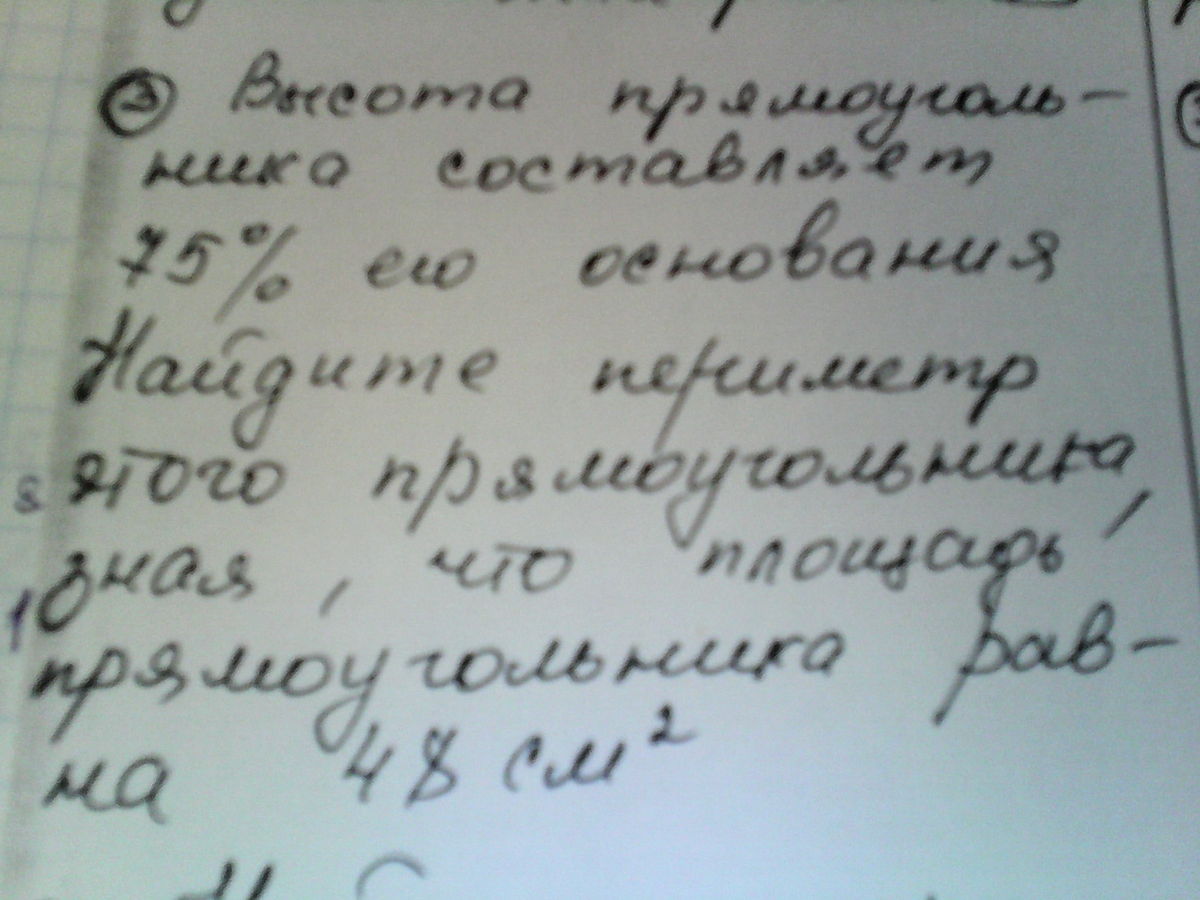 ② Высота прямоуголь-
ника составляет
75% его основания
Найдите периметр
этого прямоугольника,
зная, что площадь
прямоугольника рав-
на 48 см²